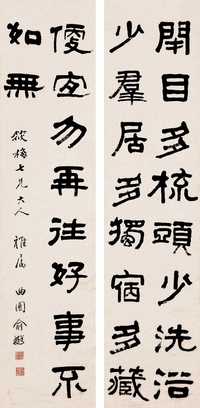 閉目多梳頭少洗浴
少羣居多獨宿多藏
便宜勿再往好事不
如無
筱梅七兄大人 雅屬 曲園俞樾